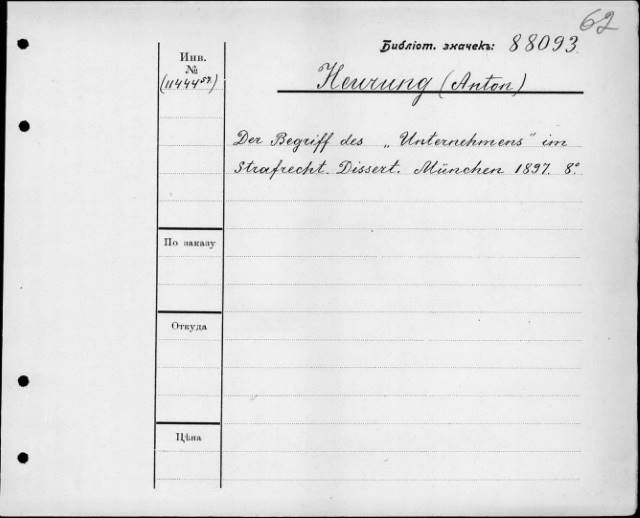 62
Библіот. значекъ: 88093.
Инв.
№
Heurung (Anton)
Der Begriff des „Unternehmens" im
Strafrecht. Dissert. München 1897. 8°
По заказу
Откуда
Цѣна